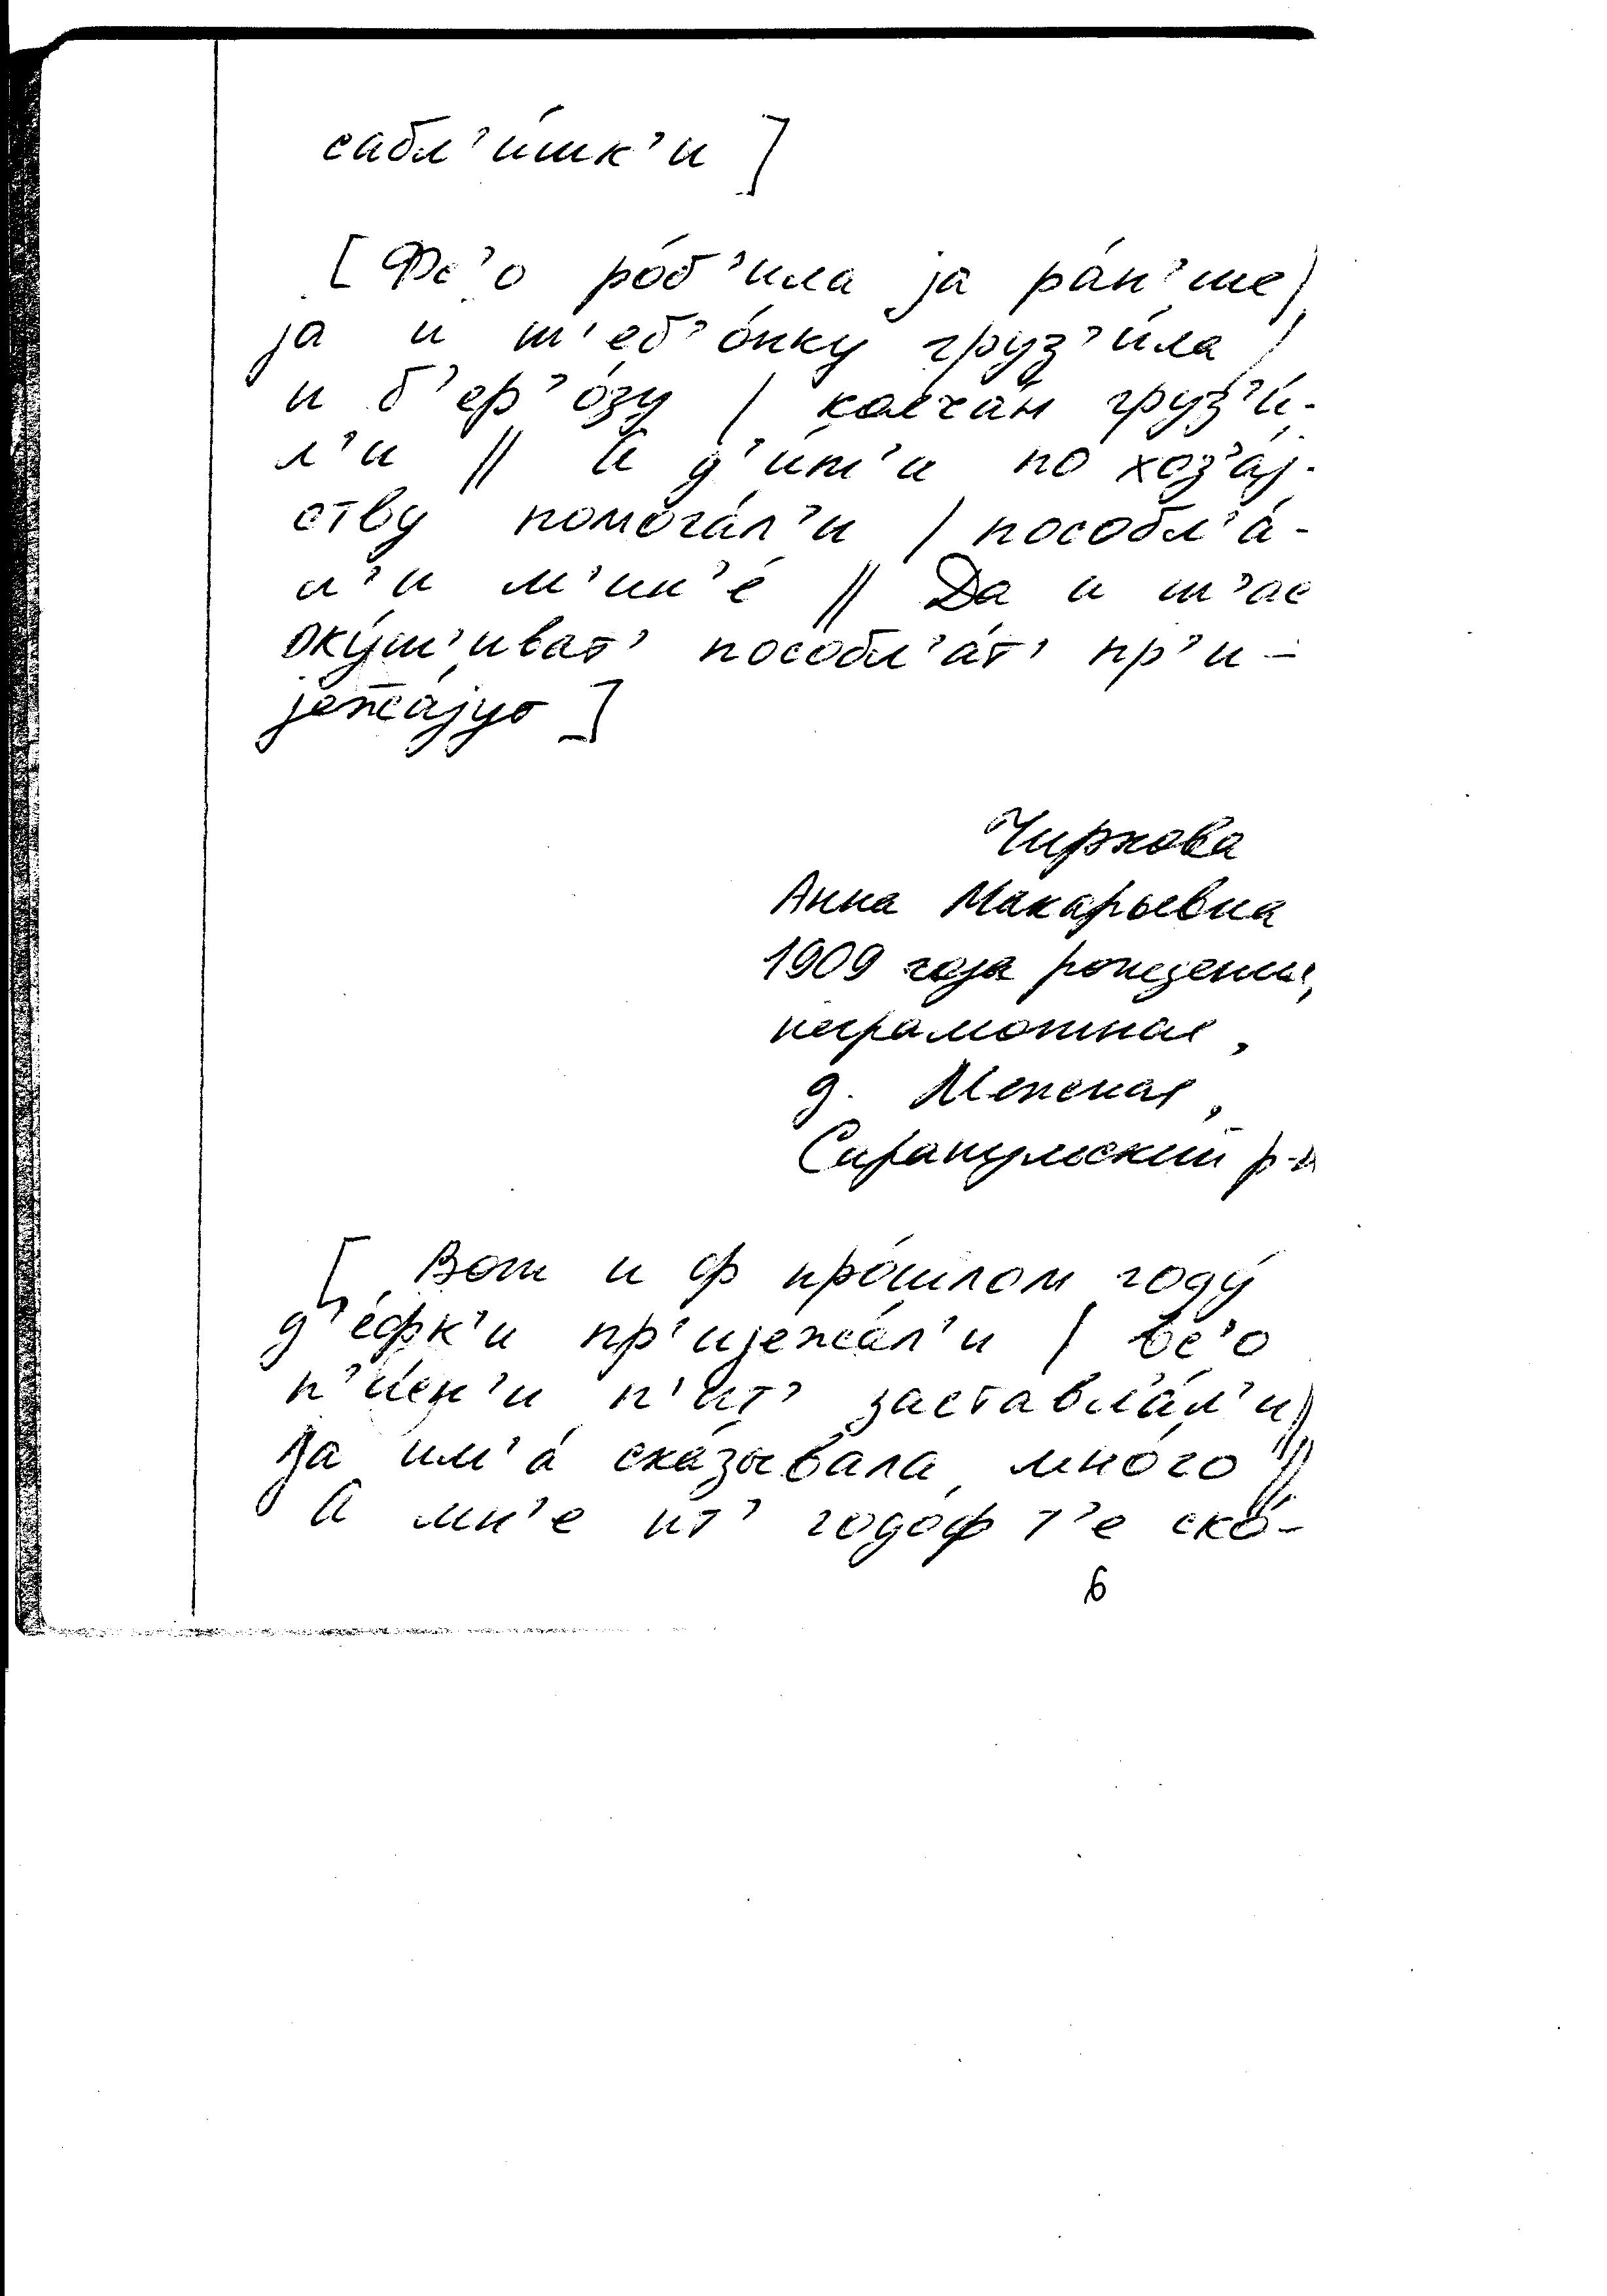 сабл’и́шк’и ]
[ Фс’о ро́б’ила jа ра́н’ше |
jа и ш’еб’о́нку груз’и́ла |
и б’ер’о́зу | колча́н груз’и́-
л’и || И д’и́т’и по хоз’а́j-
ству помога́л’и | пособл’а́-
л’и м’ин’е́ || Да и ш’ас
оку́ш’иват’ пособл’а́т’ пр’и-
jежа́jут ]
Чиркова
Анна Макарьевна
1909 года рождения,
неграмотная,
д. Межная,
Сарапульский р-н
[ Вот и ф про́шлом году́
д’е́фк’и пр’иjежа́л’и | вс’о
п’и́сн’и п’ит’ заставл’а́л’и ||
Jа им’а́ ска́зывала мно́го ||
А мн’е ит’ годо́ф т’е ско́-
6